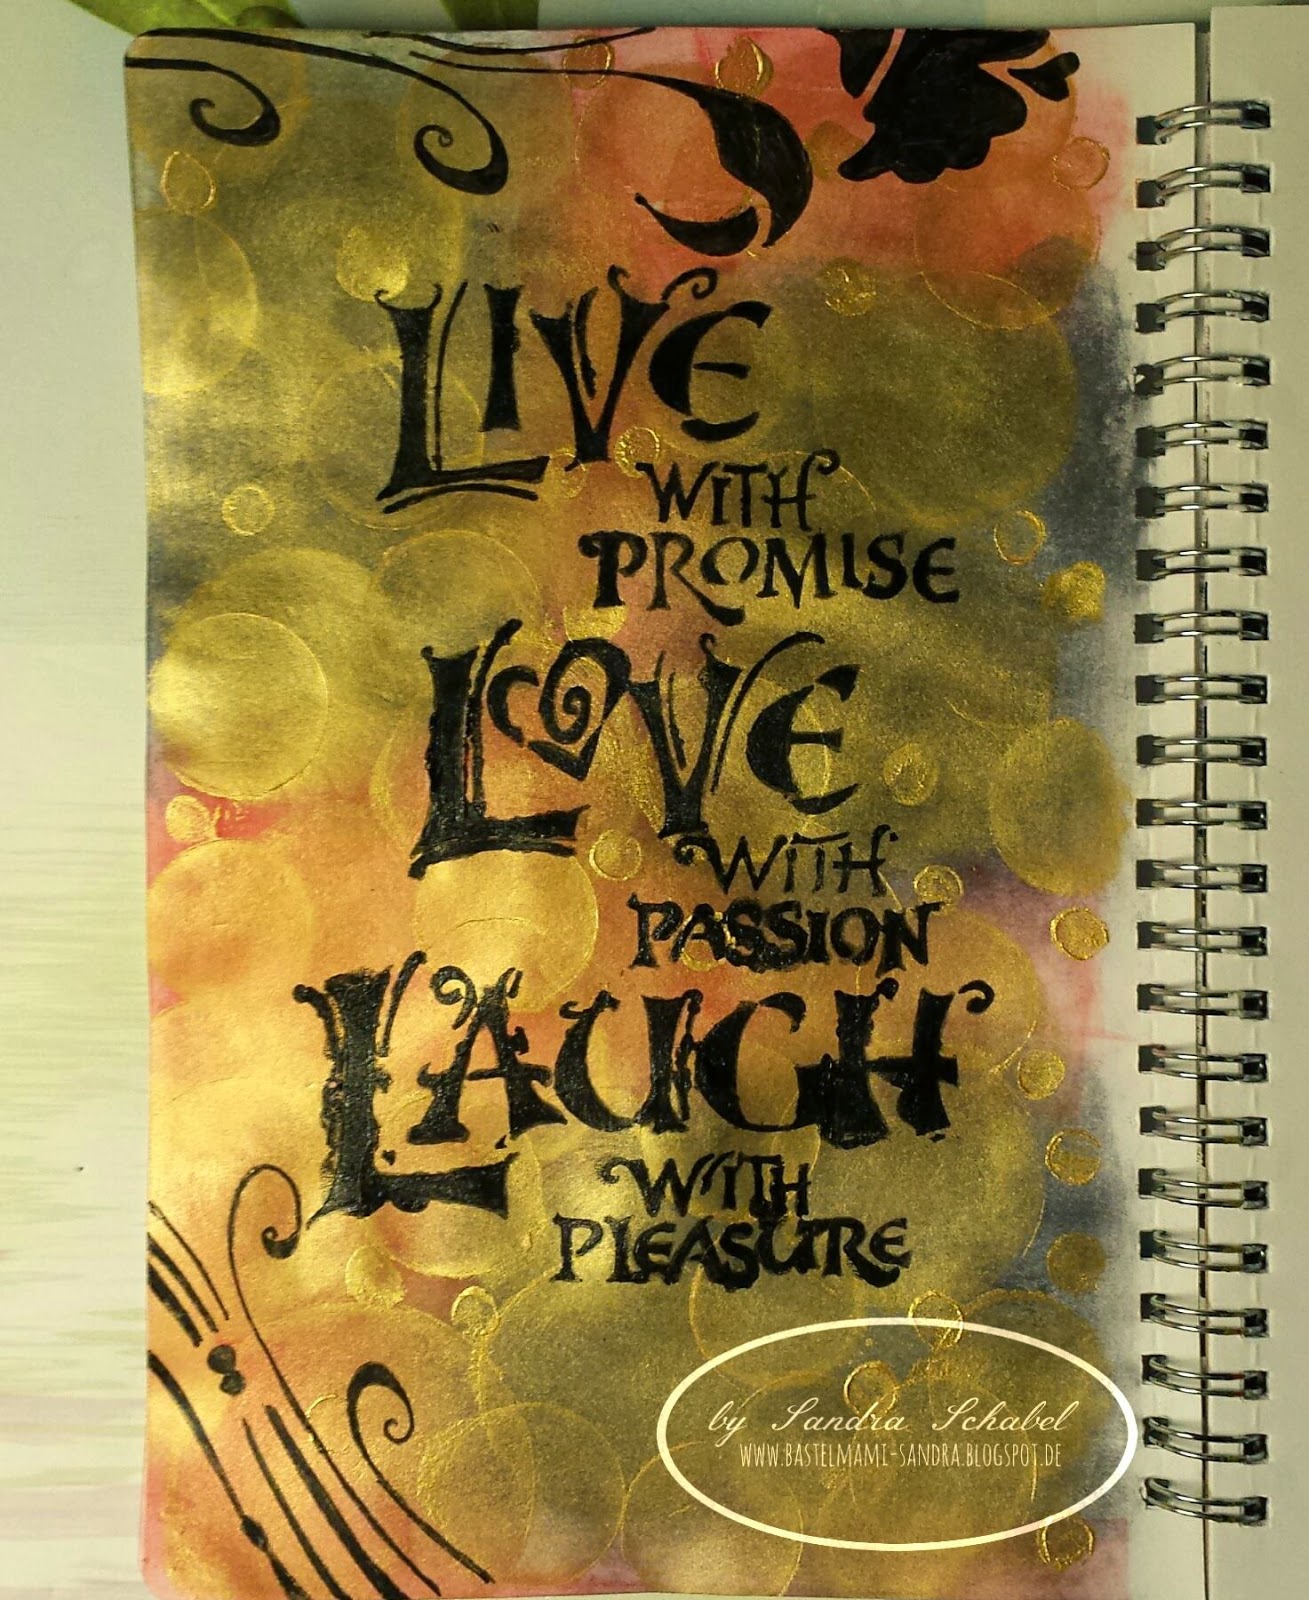 LIVE
WITH
PROMISE
LOVE
WITH
PASSION
LAUGH
WITH
PLEASURE
by Sandra Schabel
WWW.BASTELMAMI-SANDRA.BLOGSPOT.DE